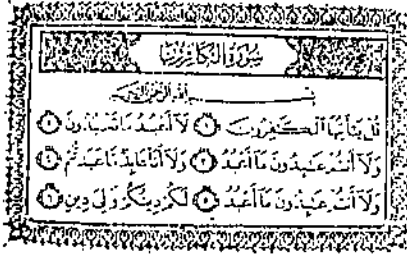 سورة الكافرون
بسم الله الرحمن الرحيم
قل يٰأيها الكٰفرون ۝ لا أعبد ما تعبدون ۝
ولا أنتم عٰبدون ما أعبد ۝ ولا أنا عابد ما عبدتم ۝
ولا أنتم عٰبدون ما أعبد ۝ لكم دينكم ولي دين ۝